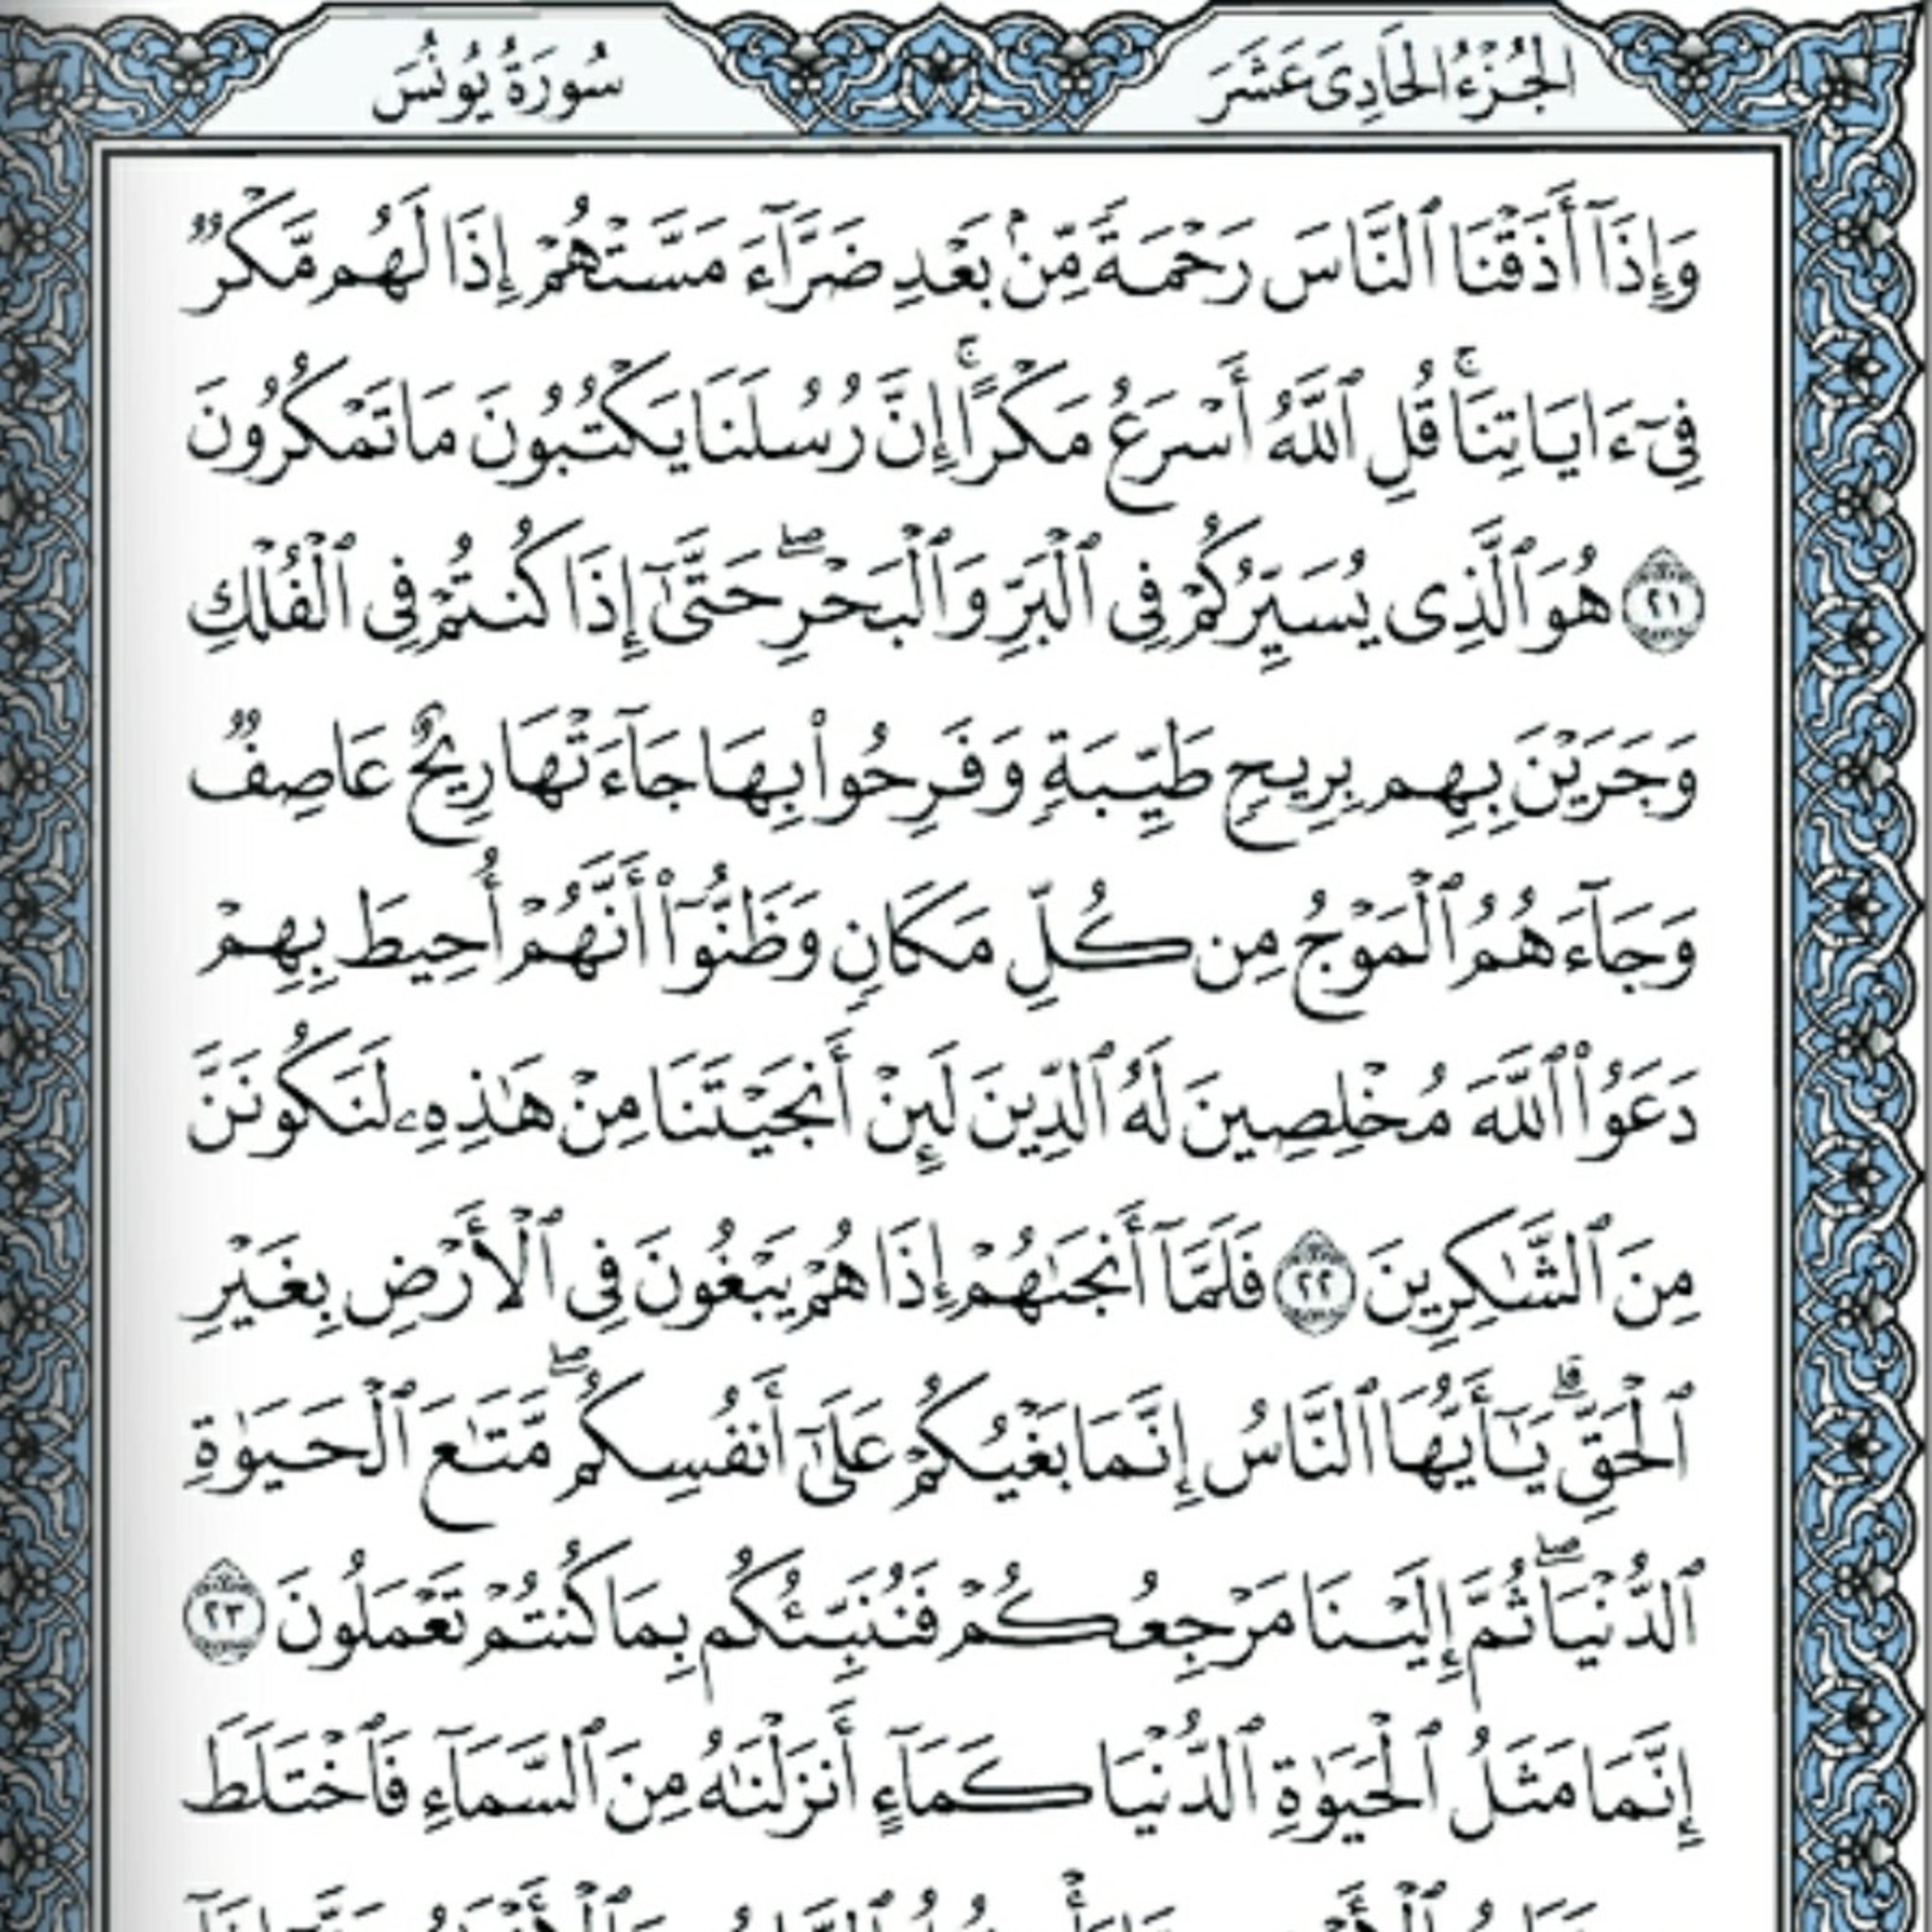 الجُزْءُ الحَادِىَ عَشَرَ
سُورَةُ يُونُسَ
وَإِذَآ أَذَقْنَا ٱلنَّاسَ رَحْمَةً مِّنۢ بَعْدِ ضَرَّآءَ مَسَّتْهُمْ إِذَا لَهُم مَّكْرٌ
فِىٓ ءَايَاتِنَاۚ قُلِ ٱللَّهُ أَسْرَعُ مَكْرًاۚ إِنَّ رُسُلَنَا يَكْتُبُونَ مَا تَمْكُرُونَ
٢١ هُوَ ٱلَّذِى يُسَيِّرُكُمْ فِى ٱلْبَرِّ وَٱلْبَحْرِۖ حَتَّىٰٓ إِذَا كُنتُمْ فِى ٱلْفُلْكِ
وَجَرَيْنَ بِهِم بِرِيحٍ طَيِّبَةٍ وَفَرِحُوا۟ بِهَا جَآءَتْهَا رِيحٌ عَاصِفٌ
وَجَآءَهُمُ ٱلْمَوْجُ مِن كُلِّ مَكَانٍ وَظَنُّوٓا۟ أَنَّهُمْ أُحِيطَ بِهِمْ
دَعَوُا۟ ٱللَّهَ مُخْلِصِينَ لَهُ ٱلدِّينَ لَئِنْ أَنجَيْتَنَا مِنْ هَٰذِهِۦ لَنَكُونَنَّ
مِنَ ٱلشَّٰكِرِينَ ٢٢ فَلَمَّآ أَنجَىٰهُمْ إِذَا هُمْ يَبْغُونَ فِى ٱلْأَرْضِ بِغَيْرِ
ٱلْحَقِّۗ يَٰٓأَيُّهَا ٱلنَّاسُ إِنَّمَا بَغْيُكُمْ عَلَىٰٓ أَنفُسِكُمۖ مَّتَٰعَ ٱلْحَيَوٰةِ
ٱلدُّنْيَاۖ ثُمَّ إِلَيْنَا مَرْجِعُكُمْ فَنُنَبِّئُكُم بِمَا كُنتُمْ تَعْمَلُونَ ٢٣
إِنَّمَا مَثَلُ ٱلْحَيَوٰةِ ٱلدُّنْيَا كَمَآءٍ أَنزَلْنَٰهُ مِنَ ٱلسَّمَآءِ فَٱخْتَلَطَ